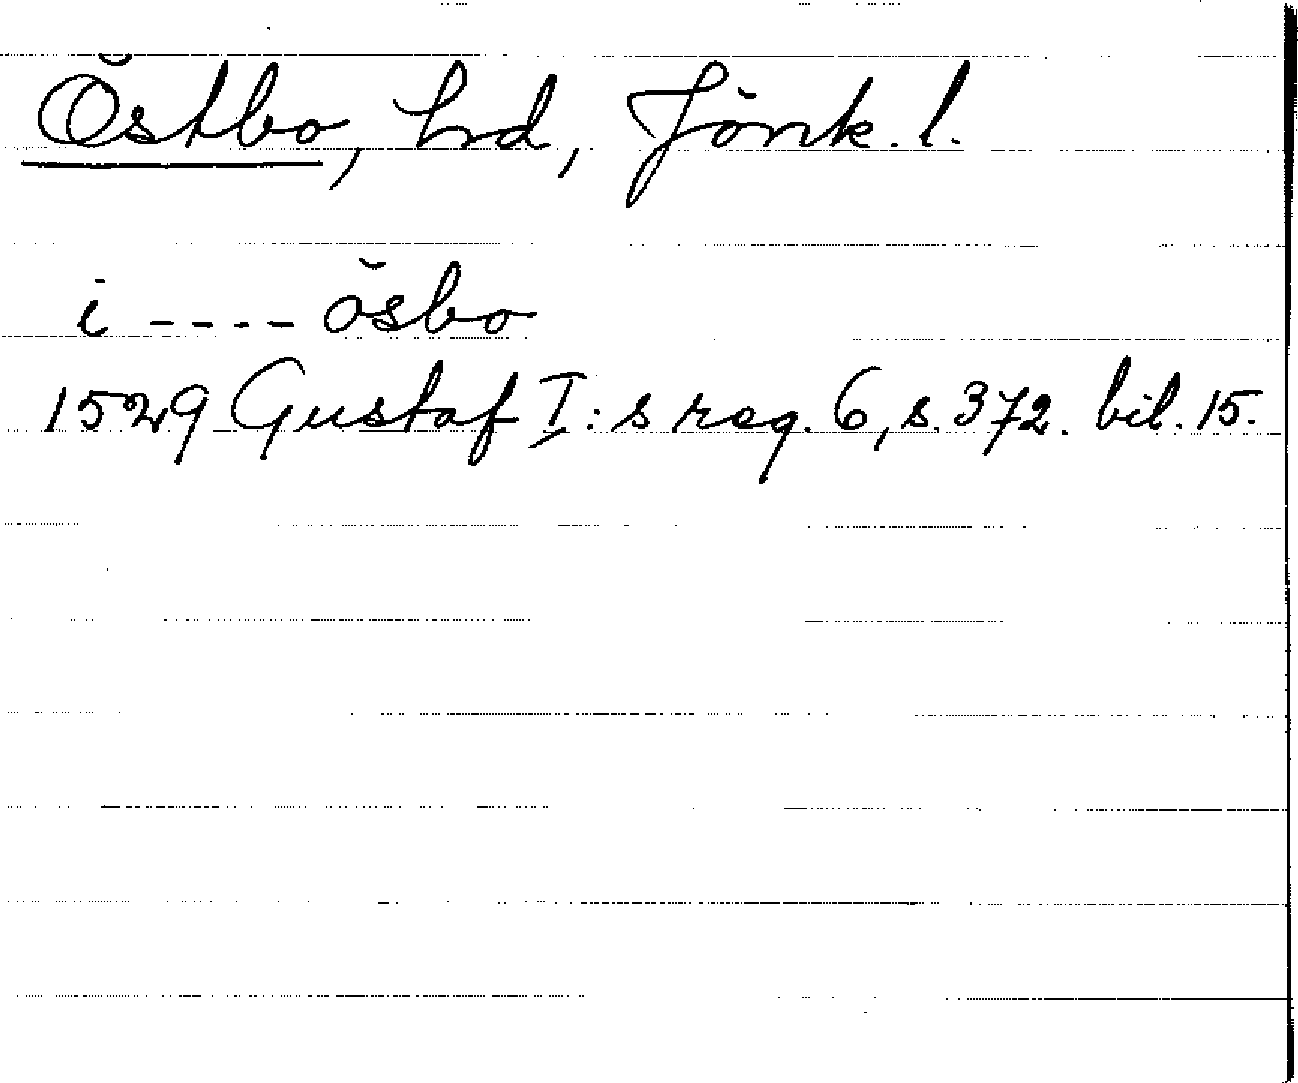 Östbo, hrd, Jönk. l.
i ---- ösbo
1529 Gustaf I:s reg. 6, s. 372. bil. 15.